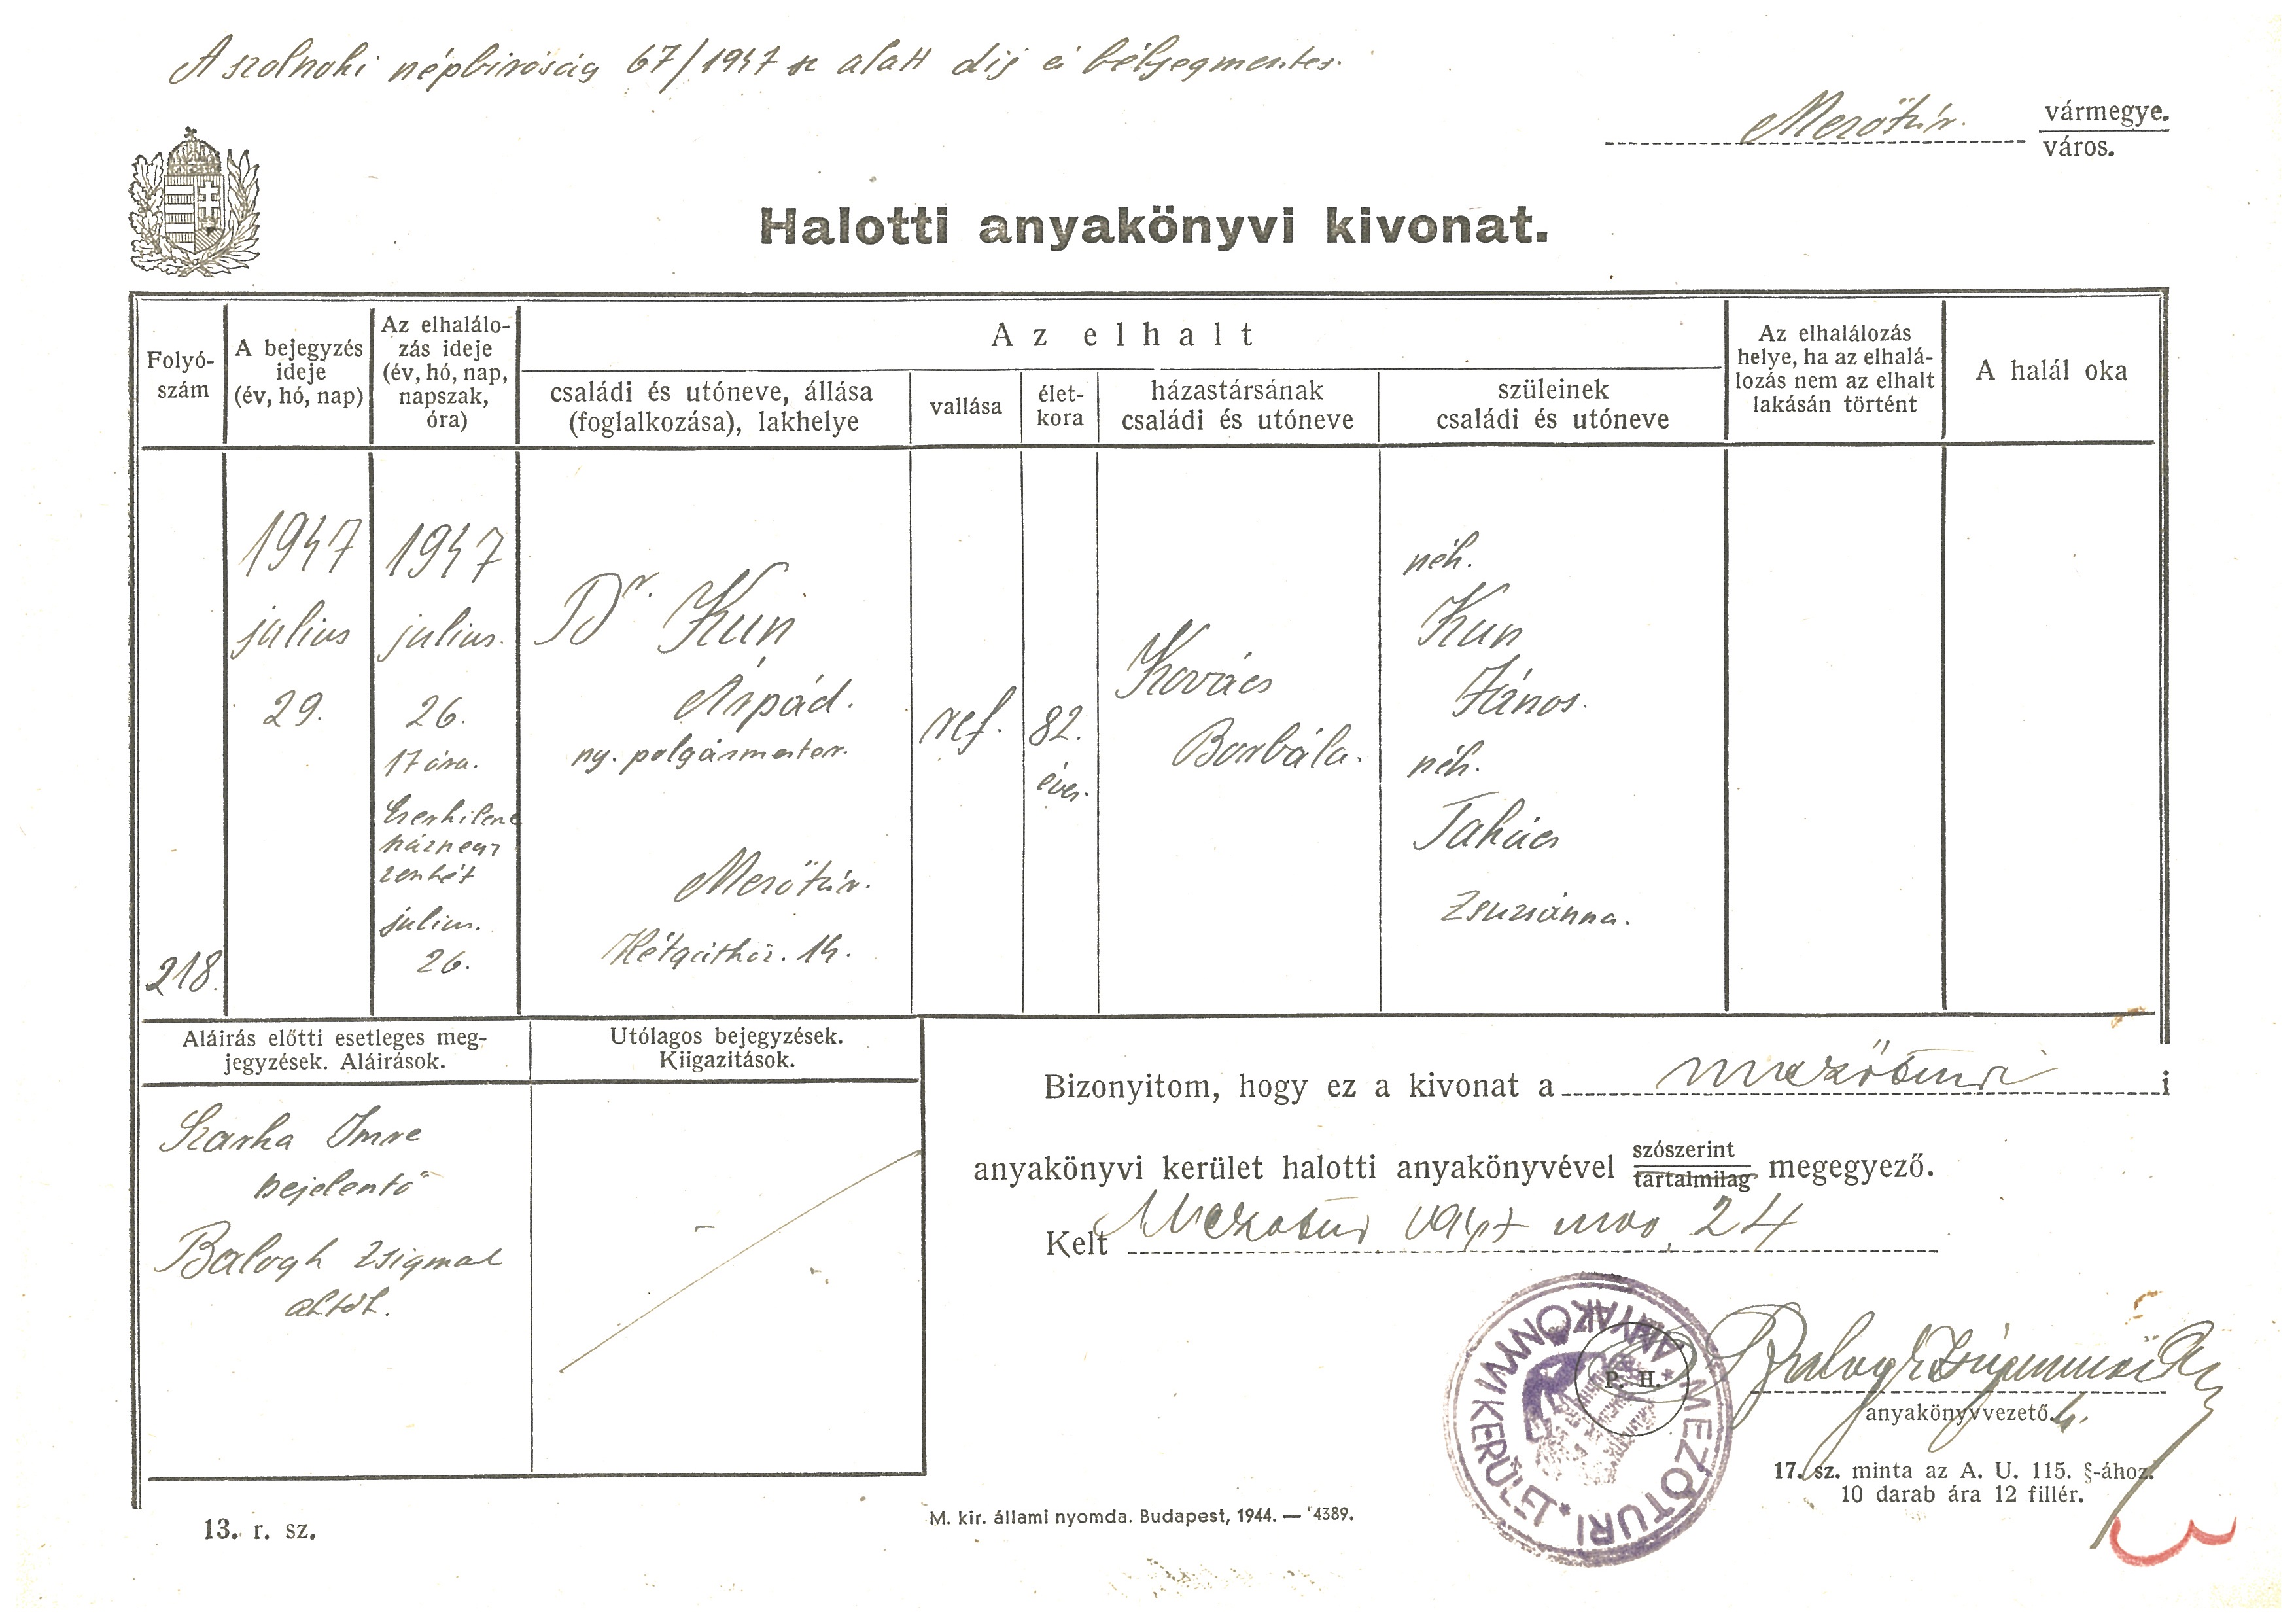 A szolnoki népbiróság 67/1947 sz alatt dij és bélyegmentes.
Mezőtúr. vármegye.
város.
Halotti anyakönyvi kivonat.
Folyó-
szám
A bejegyzés
ideje
(év, hó, nap)
Az elhalálo-
zás ideje
(év, hó, nap,
napszak,
óra)
Az elhalt
családi és utóneve, állása
(foglalkozása), lakhelye
vallása
élet-
kora
házastársának
családi és utóneve
szüleinek
családi és utóneve
Az elhalálozás
helye, ha az elhalá-
lozás nem az elhalt
lakásán történt
A halál oka
218.
1947
julius
29.
1947
julius.
26.
17 óra.
Ezerkilenc
száznegy
venhét
julius.
26.
Dr. Kun
Árpád.
ny. polgármester.
Mezőtúr.
14.
ref.
82.
éves.
Kovács
Borbála.
néh.
Kun
János.
néh.
Takács
Zsuzsánna.
Aláirás előtti esetleges meg-
jegyzések. Aláirások.
Szarka Imre
bejelentő
Balogh Zsigmond
Utólagos bejegyzések.
Kiigazitások.
Bizonyitom, hogy ez a kivonat a mezőturi i
anyakönyvi kerület halotti anyakönyvével szószerint
tartalmilag megegyező.
Kelt Mezőtúr 1947 24
MEZŐTURI ANYAKÖNYVI KERÜLET
P. H.
anyakönyvvezető. h.
17. sz. minta az A. U. 115. §-ához.
10 darab ára 12 fillér.
M. kir. állami nyomda. Budapest, 1944. — 4389.
13. r. sz.